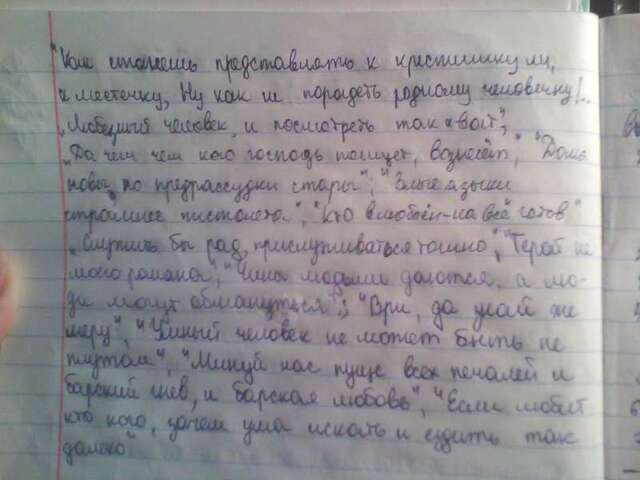 "Как станешь представлять к крестишку ли,
к местечку, Ну как не порадеть родному человечку!..
"Любезный человек, и посмотреть так хват",
"Да чем чем кого господь поищет, вознесёт", "Дома
новы, но предрассудки стары", "Злые языки
страшнее пистолета.", "Кто влюблён-на всё готов"
"Служить бы рад, прислуживаться тошно", "Герой не
моего романа", "Чины людьми даются, а лю-
ди могут обмануться"; "Ври, да знай же
меру", "Умный человек не может быть не
плутом", "Минуй нас пуще всех печалей и
барский гнев, и барская любовь", "Если любит
кто кого, зачем ума искать и ездить так
далеко"